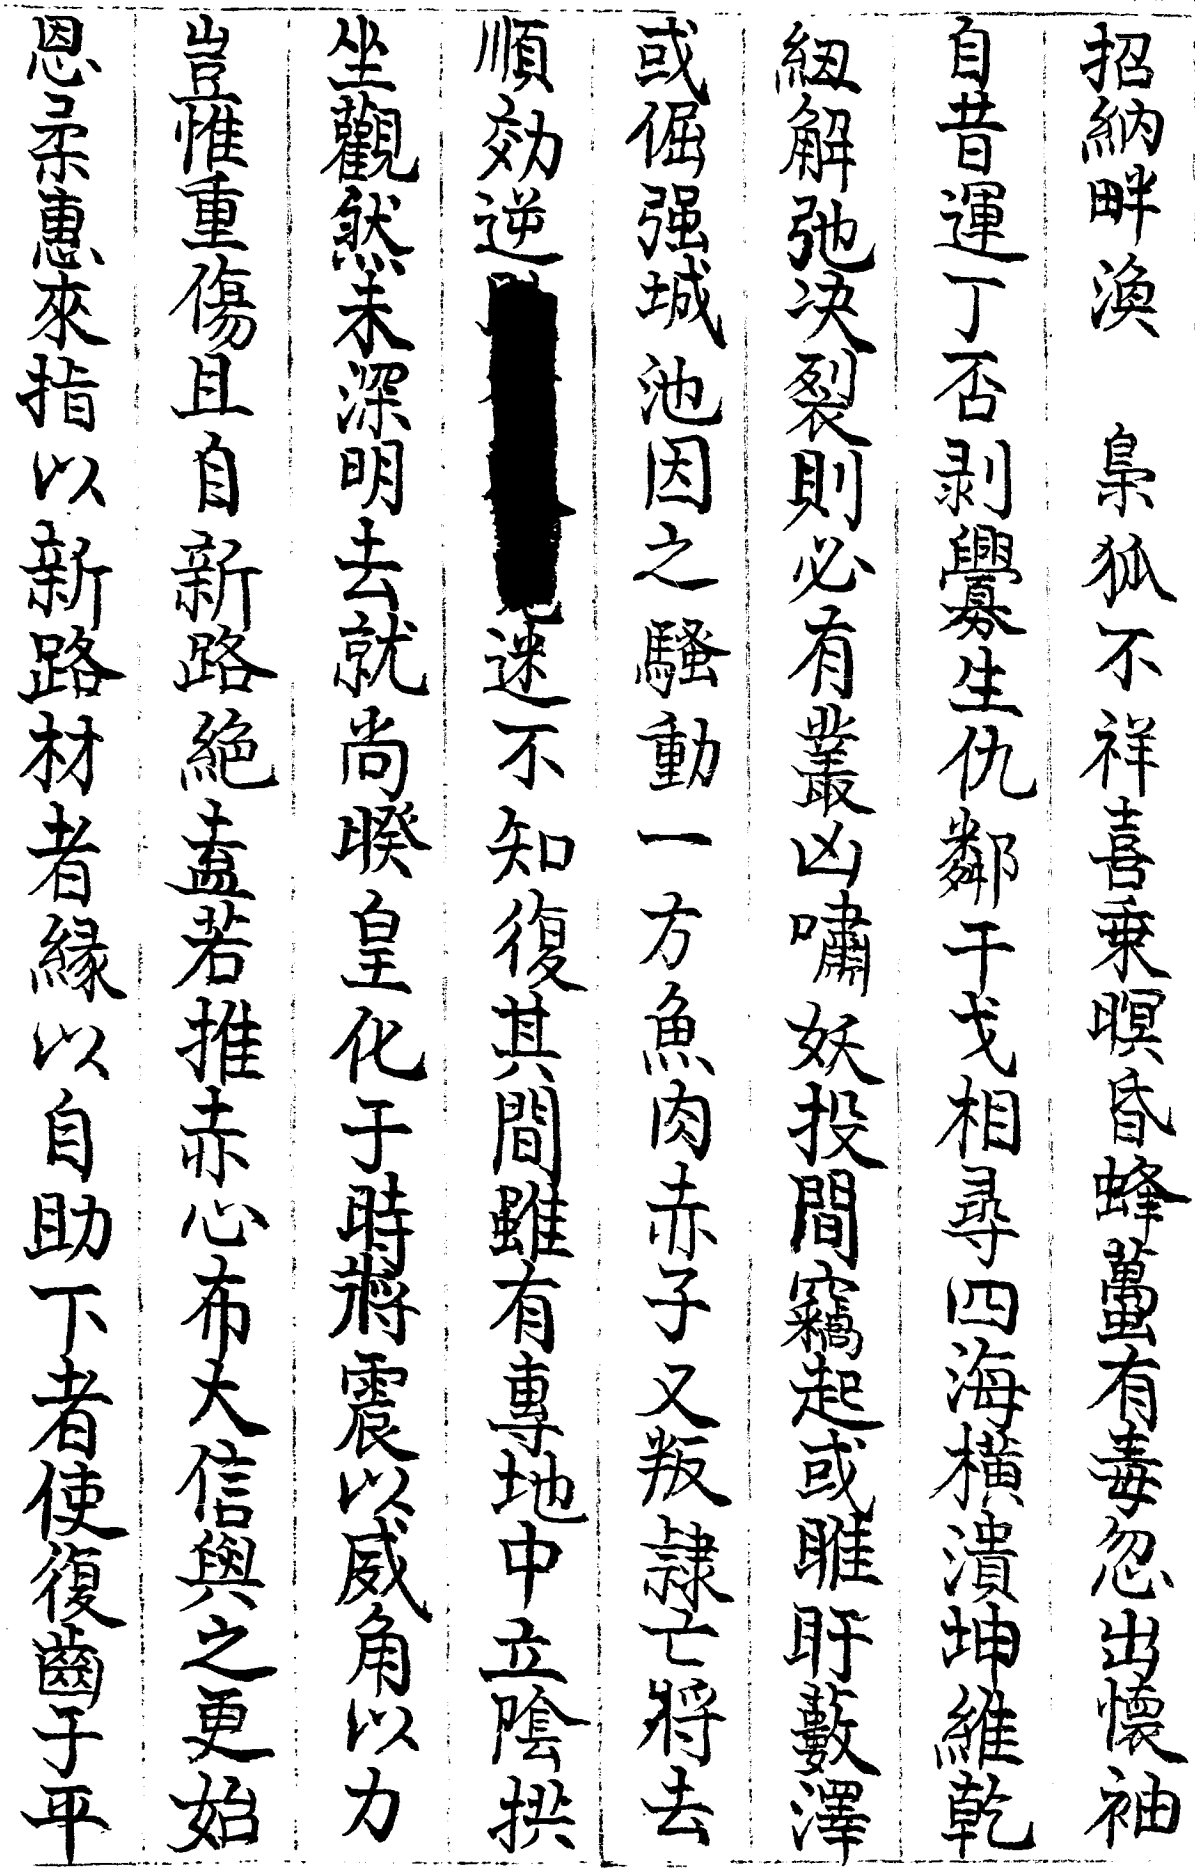 招納畔渙　梟狐不祥喜乗暝昏蜂蠆有毒忽出懷袖
自昔運丁否剥釁生仇鄰干戈相尋四海橫潰坤維乾
紐解弛决裂則必有叢凶嘯妖投間竊起或睢盱藪澤
或倔强城池因之騷動一方魚肉赤子又叛隷亡將去
順効逆迷不知復其間雖有專地中立陰拱
坐觀然未深明去就尚睽皇化于時將震以威角以力
豈惟重傷且自新路絶盍若推赤心布大信與之更始
恩柔惠來指以新路材者緣以自助下者使復齒于平